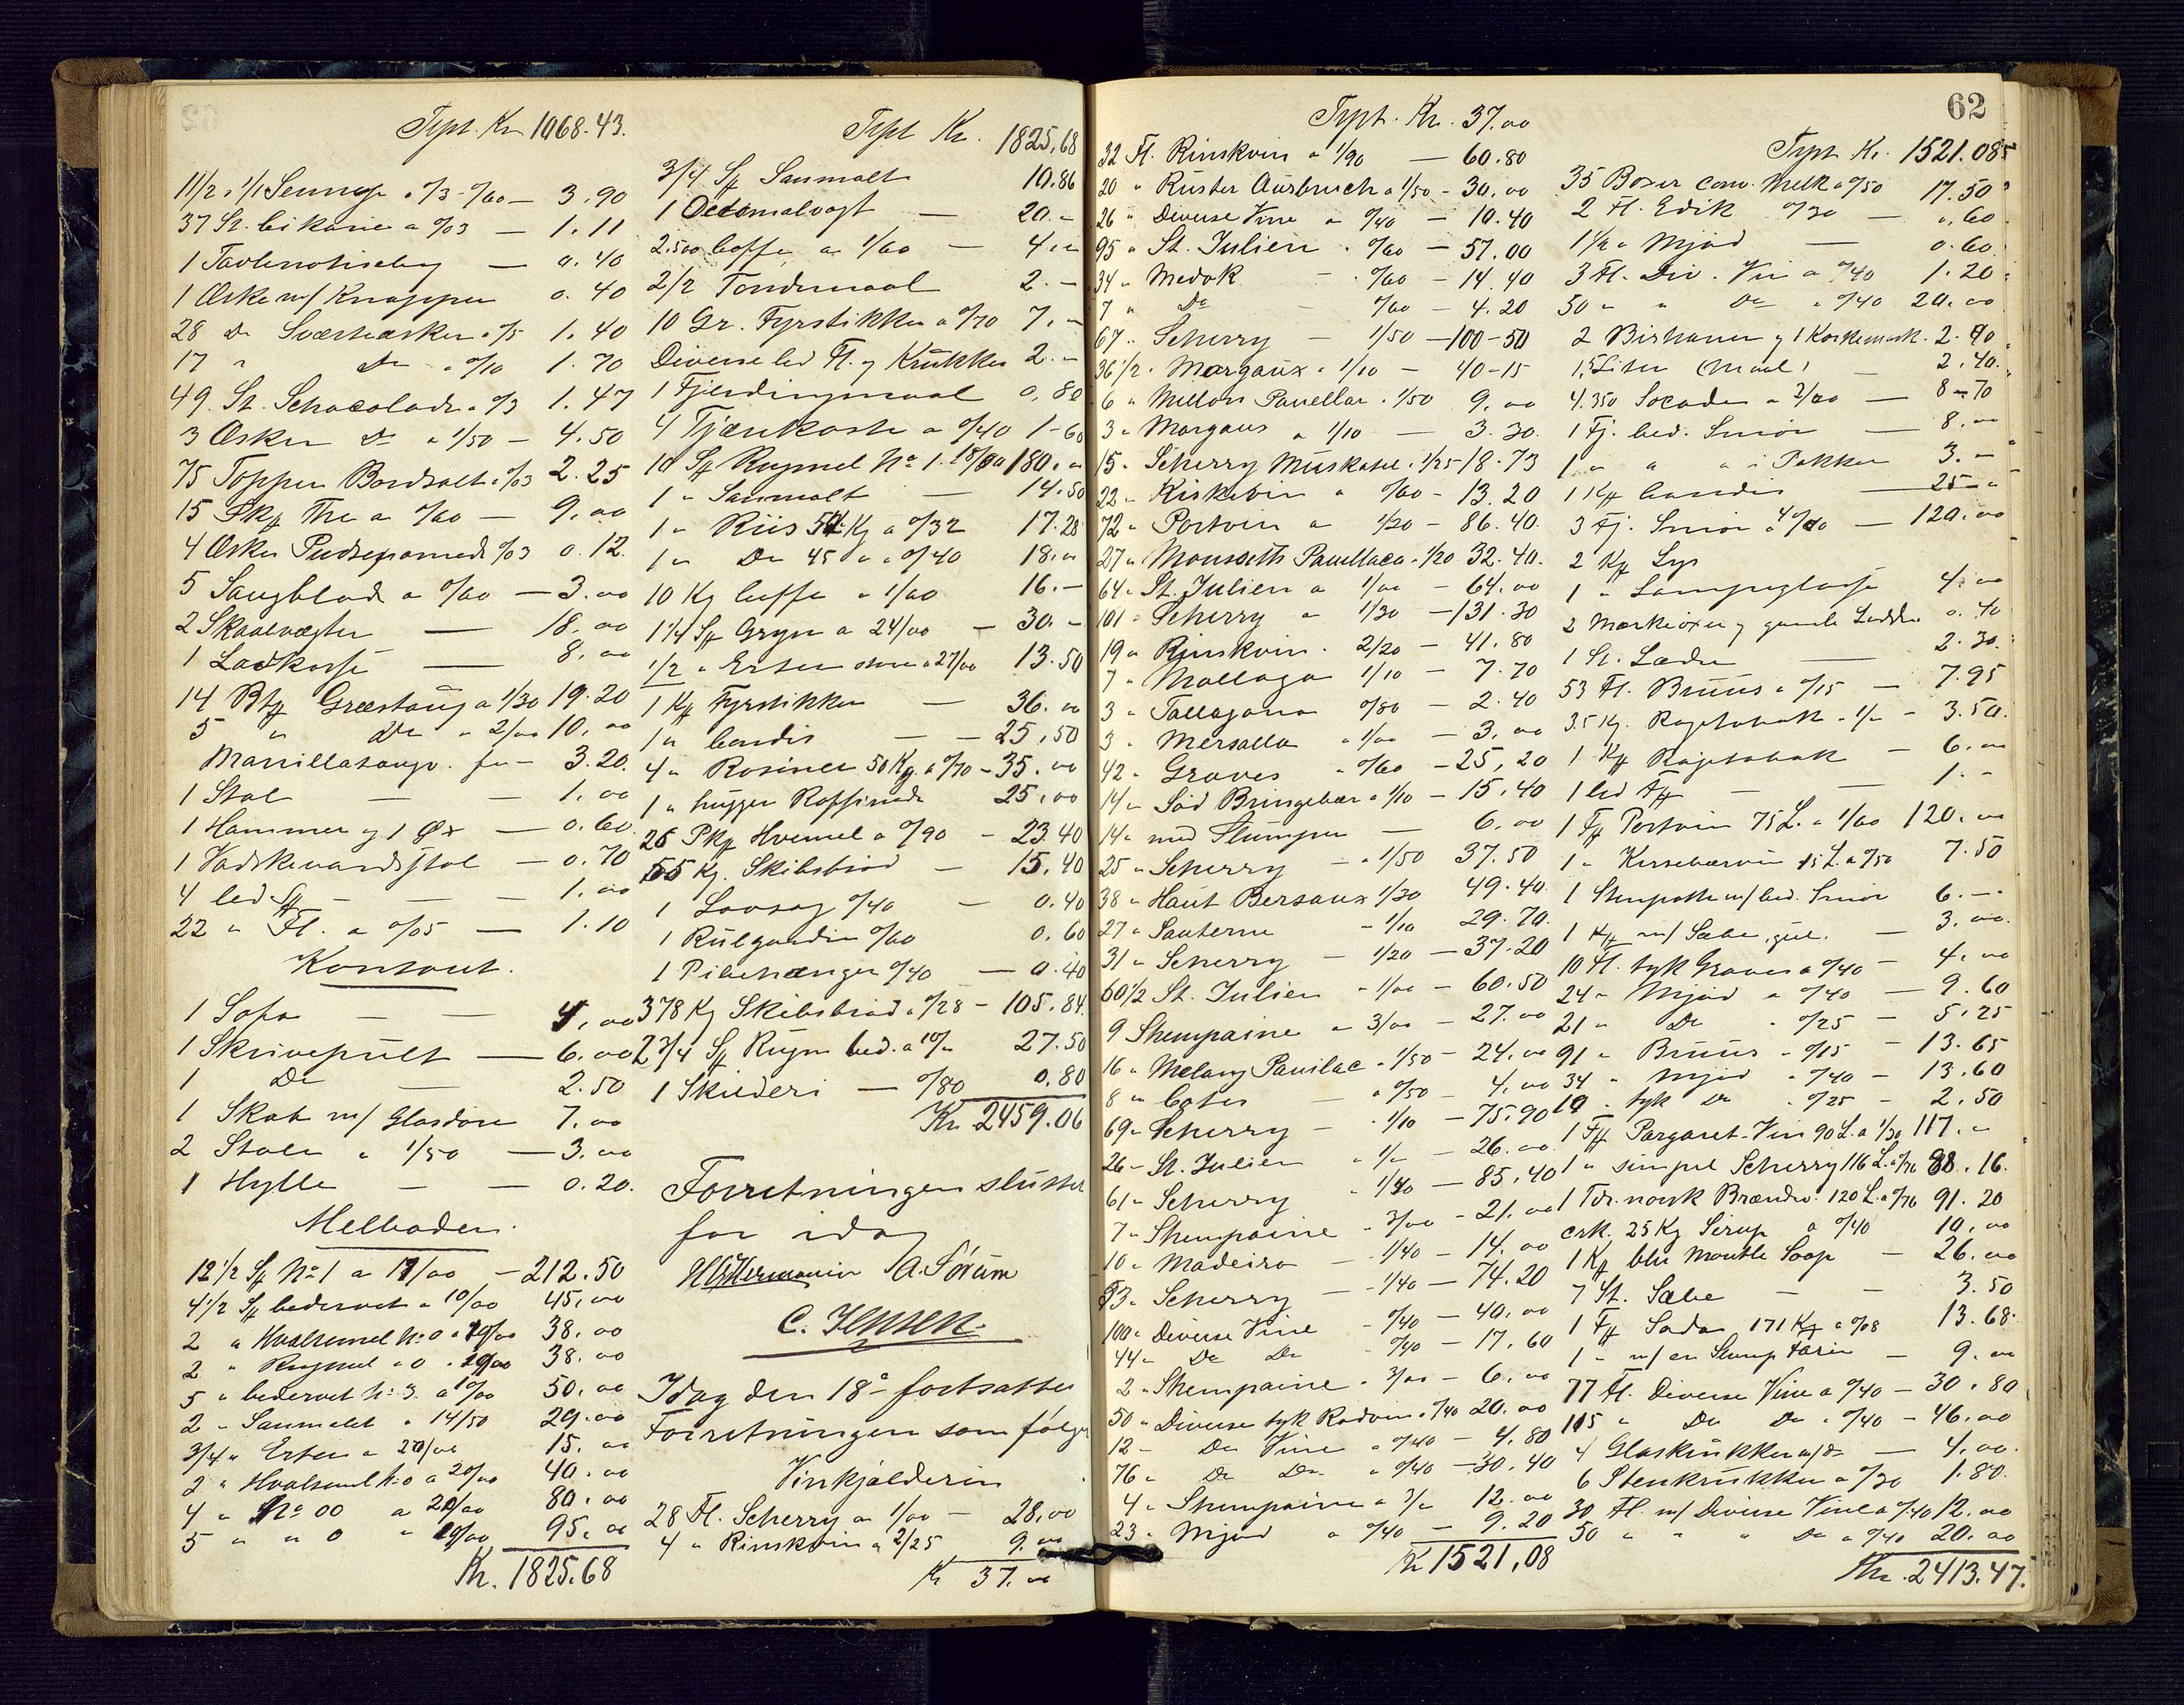 Trpt. Kr 1068.43.
11 1/2 a 1/1 Sennop a 0/3 - 0/60 — 3.90
37 St. Cikorier a 0/03 — 1.11
1 Tavlenotiseboy — 0.40
1 Æske m/ Knapper 0.40
28 Do Sværteæsker a 0/5 1.40
17 " Do a 0/10 1.70
49 St. Schocolade a 0/3 1.47
3 Æsker Do a 1/50 — 4.50
75 Topper Bordsalt a 0/03 2.25
15 Pkf The a 0/60 — 9.00
4 Æsker Pudsepomade 0/03 0.12.
5 Saugblade a 0/60 — 3.00
2 Skaalvægter — 18.00
1 Ladkasse — 8.00
14 Btf Græstaug a 1/30 19.20
5 " Do a 2/00 10.00
Manillatauge 3.20.
1 Stol — 1.00
1 Hammer og 1 Øx — 0.60
1 Vadskevandsstol — 0.70
4 led Sf — 1.00
22 " Fl. a 0/05 — 1.10
Kontoret.
1 Sofa — 4.00
1 Skrivepult — 6.00
1 Do — 2.50
1 Skab m/ Glasdøre 7.00
2 Stole a 1/50 — 3.00
1 Hylle — 0.20.
Melboden.
12 1/2 Sf No 1 a 17/00 — 212.50
4 1/2 Sf bedervet a 10/00 45.00
2 " Hvalsemel No 0 a 19/00 38.00
2 " Rugmel " 0 a 19/00 38.00
5 " bedervet No 3. a 10/00 50.00
2 " Sanmalet a 14/50 29.00
3/4 " Erter a 20/00 15.00
2 " Hvalsemel No 0 a 20/00 40.00
4 " No 00 a 20/00 80.00
5 " " 0 a 19/00 95.00
Kr. 1825.68
Trpt Kr. 1825.68
3/4 Sf Sanmalt 10.86
1 Decimalvægt — 20.-
2.500 Caffe a 1/60 — 4.00
2/2 Tøndemaal 2.-
10 Gr. Fyrstikker a 0/70 7.-
Diverse led Fl. og Krukker 2.-
1 Fjerdingmaal 0.80
4 Tjærekoste a 0/40 1-60
10 Sf Rugmel No 1. 18/00 180.00
1 " Sanmalt — 14.50
1 " Riis 54 Kg a 0/32 17.28
1 " Do 45 " a 0/40 18.00
10 Kg Caffe a 1/60 16.-
1 1/4 Sf Gryn a 24/00 — 30.-
1/2 " Erter store a 27/00 13.50
1 Kf Fyrstikker — 36.00
1 " Candis — 25.50
4 " Rosiner 50 Kg. a 0/70 - 35.00
1 " hugger Raffinade 25.00
26 Pkf Hvemel a 0/90 - 23.40
55 Kg. Skibsbrød — 15.40
1 Løvsag 0/40 — 0.40
1 Rulgardin 0/60 0.60
1 Pibehænger 0/40 — 0.40
378 Kg Skibsbrød a 0/28 - 105.84.
2 3/4 Sf Rugm bed. a 10/- 27.50
1 Skilderi — 0/80 0.80
Kr. 2459.06
Forretningen sluttet
for idag
A. Sørum
C. Jensen.
Idag den 18de fortsattes
Forretningen som følger
Vinkjælderen
28 Fl. Scherry a 1/00 — 28.00
4 " Rinskvin a 2/25 9.00
Kr 37.00
62
Trpt. Kr. 37.00
32 Fl. Rinskvin a 1/90 — 60.80
20 " Ruster Ausbruch a 1/50 - 30.00
26 " Diverse Vine a 0/40 - 10.40
95 " St. Julien a 0/60 - 57.00
34 " Medok - 0/60 - 14.40
7 " Do 0/60 - 4.20
67 " Scherry - 1/50 — 100-50
36 1/2 " Margaux a 1/10 - 40-15
6 " Millon Pauellac a 1/50 9.00
3 " Margaux a 1/10 — 3.30.
15 " Scherry Muskatel a 1/25 18.73
22 " Kirskevin a 0/60 - 13.20
72 " Portvin a 1/20 - 86.40.
27 " Monseths Pauellaca a 1/20 32.40.
64 " St. Julien a 1/00 - 64.00
101 " Scherry a 1/30 - 131.30
19 " Rinskvin. 2/20 - 41.80
7 " Mallaga 1/10 - 7.70
3 " Tallagona 0/80 - 2.40
3 " Mersalla a 1/00 - 3.00
42 " Graves a 0/60 - 25.20
14 " Sød Bringebær a 1/10 - 15.40
14 " med Slumper — 6.00
25 " Scherry - a 1/50 37.50
38 " Haut Bersaux 1/30 49.40.
27 " Sauterne - 1/10 29.70.
31 " Scherry - 1/20 - 37.20
60 1/2 St. Julien a 1/00 - 60.50
9 Shempaine a 3/00 - 27.00
16 " Melany Pauilac a 1/50 - 24.00
8 " Cotes - a 0/50 - 4.00
69 " Scherry - a 1/10 - 75.90
26 " St. Julien a 1/- - 26.00
61 " Scherry a 1/40 — 85.40
7 " Shempaine a 3/00 - 21.00
10 " Madeira - 1/40 - 14.00
53 " Scherry - 1/40 - 74.20
100 " Diverse Vine - 0/40 - 40.00
44 " Do Do - 0/40 - 17.60
2 " Shempaine a 3/00 - 6.00
50 " Diverse tyk Rødvin a 0/40 20.00
12 " Do Vine a 0/40 - 4.80
76 " Do Do a 0/40 - 30.40
4 " Shempaine a 3/- 12.00
23 " Mjød a 0/40 - 9.20
Kr 1521,08
Trpt Kr. 1521.08
35 Boxer cons. Melk a 0/50 17.50
2 Fl. Edik 0/30 — 0.60
1 1/2 " Mjød — 0.60
3 Fl. Div. Vin a 0/40 1.20
50 " " Do a 0/40 20.00
2 Birhaner og 1 Korkemask. 2.90
1,5 Liter (Maal) — 2.40.
4.350 Socade a 2/00 — 8-70
1 Fj. bed. Smør — 8.00
1 " " " i Pakker 3.-
1 Kf Candis — 25-00
3 Fj. Smør a 40/00 — 120.00
2 Kf Lys
1 " Lampeglasse 4.00
2 Merkeøxer og gamle Lædder 0.40
1 St. Læder — 2.30.
53 Fl. Bruus a 0/15 — 7.95
3.5 Kg. Røgetobak a 1/- - 3.50.
1 Kf Røgetobak - 6.00
1 led Ff — 1.-
1 Ff Portvin 75 L. a 1/60 120.00
1 " Kirsebærvin 15 L. a 0/50 7.50
1 Stenpotte m/ bed. Smør 6.-
1 Kf m/ Sæbe, gul. — 3.00
10 Fl. tyk Graves a 0/40 - 4.00
24 " Mjød a 0/40 — 9.60
21 " Do a 0/25 - 5.25
91 " Bruus a 0/15 - 13.65
34 " Mjød a 0/40 - 13.60
10 " tyk Do a 0/25 - 2.50
1 Ff Pargaret-Vin 90 L. a 1/30 117.-
1 " simpel Scherry 116 L. a 0/76 88.16.
1 Tdr. norsk Brændev. 120 L. a 0/76 91.20
crk. 25 Kg Sirup a 0/40 10.00
1 Kf blu Mouttle Soap - 26.00
7 St. Sæbe — 3.50
1 Ff Soda 171 Kg a 0/08 13.68.
1 " m/ en Slump Farin — 9.00
77 Fl. Diverse Vine a 0/40 - 30.80
115 " Do Do a 0/40 - 46.00
4 Glaskrukker m/do — 4.00.
6 Stenkrukker a 0/30 1.80.
30 Fl. m/ Diverse Vine a 0/40 12.00
50 " " " Do a 0/40 20.00
Kr. 2413.47.